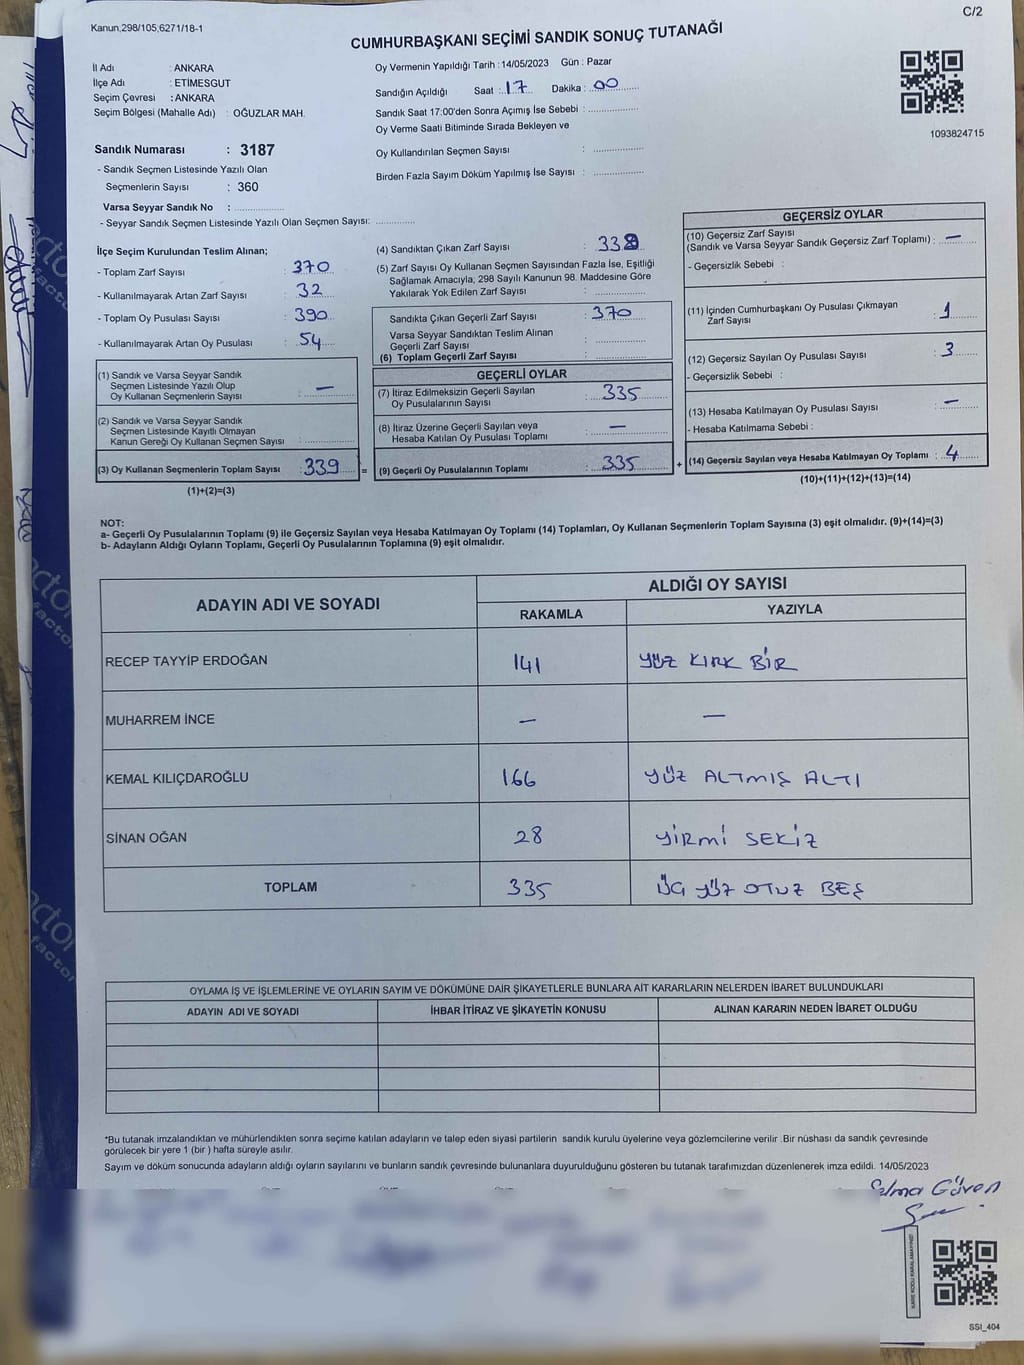 Kanun,298/105,6271/18-1
C/2
CUMHURBAŞKANI SEÇİMİ SANDIK SONUÇ TUTANAĞI
İl Adı : ANKARA
İlçe Adı : ETİMESGUT
Seçim Çevresi : ANKARA
Seçim Bölgesi (Mahalle Adı) : OĞUZLAR MAH.
Sandık Numarası : 3187
- Sandık Seçmen Listesinde Yazılı Olan
Seçmenlerin Sayısı : 360
Varsa Seyyar Sandık No :
- Seyyar Sandık Seçmen Listesinde Yazılı Olan Seçmen Sayısı:
Oy Vermenin Yapıldığı Tarih :14/05/2023 Gün : Pazar
Sandığın Açıldığı Saat : 17 Dakika : 00
Sandık Saat 17:00'den Sonra Açımış İse Sebebi :
Oy Verme Saati Bitiminde Sırada Bekleyen ve
Oy Kullandırılan Seçmen Sayısı :
Birden Fazla Sayım Döküm Yapılmış İse Sayısı :
1093824715
İlçe Seçim Kurulundan Teslim Alınan;
- Toplam Zarf Sayısı : 370
- Kullanılmayarak Artan Zarf Sayısı : 32
- Toplam Oy Pusulası Sayısı : 390
- Kullanılmayarak Artan Oy Pusulası : 54
(1) Sandık ve Varsa Seyyar Sandık
Seçmen Listesinde Yazılı Olup
Oy Kullanan Seçmenlerin Sayısı : —
(2) Sandık ve Varsa Seyyar Sandık
Seçmen Listesinde Kayıtlı Olmayan
Kanun Gereği Oy Kullanan Seçmen Sayısı :
(3) Oy Kullanan Seçmenlerin Toplam Sayısı : 339 =
(1)+(2)=(3)
(4) Sandıktan Çıkan Zarf Sayısı :
(5) Zarf Sayısı Oy Kullanan Seçmen Sayısından Fazla İse, Eşitliği
Sağlamak Amacıyla, 298 Sayılı Kanunun 98. Maddesine Göre
Yakılarak Yok Edilen Zarf Sayısı :
Sandıkta Çıkan Geçerli Zarf Sayısı : 370
Varsa Seyyar Sandıktan Teslim Alınan
Geçerli Zarf Sayısı :
(6) Toplam Geçerli Zarf Sayısı :
GEÇERLİ OYLAR
(7) İtiraz Edilmeksizin Geçerli Sayılan
Oy Pusulalarının Sayısı : 335
(8) İtiraz Üzerine Geçerli Sayılan veya
Hesaba Katılan Oy Pusulası Toplamı : —
(9) Geçerli Oy Pusulalarının Toplamı : 335 +
GEÇERSİZ OYLAR
(10) Geçersiz Zarf Sayısı
(Sandık ve Varsa Seyyar Sandık Geçersiz Zarf Toplamı) : —
- Geçersizlik Sebebi :
(11) İçinden Cumhurbaşkanı Oy Pusulası Çıkmayan
Zarf Sayısı : 1
(12) Geçersiz Sayılan Oy Pusulası Sayısı : 3
- Geçersizlik Sebebi :
(13) Hesaba Katılmayan Oy Pusulası Sayısı : —
- Hesaba Katılmama Sebebi :
(14) Geçersiz Sayılan veya Hesaba Katılmayan Oy Toplamı : 4
(10)+(11)+(12)+(13)=(14)
NOT:
a- Geçerli Oy Pusulalarının Toplamı (9) ile Geçersiz Sayılan veya Hesaba Katılmayan Oy Toplamı (14) Toplamları, Oy Kullanan Seçmenlerin Toplam Sayısına (3) eşit olmalıdır. (9)+(14)=(3)
b- Adayların Aldığı Oyların Toplamı, Geçerli Oy Pusulalarının Toplamına (9) eşit olmalıdır.
ADAYIN ADI VE SOYADI ALDIĞI OY SAYISI
RAKAMLA YAZIYLA
RECEP TAYYİP ERDOĞAN 141 YÜZ KIRK BİR
MUHARREM İNCE — —
KEMAL KILIÇDAROĞLU 166 YÜZ ALTMIŞ ALTI
SİNAN OĞAN 28 YİRMİ SEKİZ
TOPLAM 335 ÜÇ YÜZ OTUZ BEŞ
OYLAMA İŞ VE İŞLEMLERİNE VE OYLARIN SAYIM VE DÖKÜMÜNE DAİR ŞİKAYETLERLE BUNLARA AİT KARARLARIN NELERDEN İBARET BULUNDUKLARI
ADAYIN ADI VE SOYADI İHBAR İTİRAZ VE ŞİKAYETİN KONUSU ALINAN KARARIN NEDEN İBARET OLDUĞU
*Bu tutanak imzalandıktan ve mühürlendikten sonra seçime katılan adayların ve talep eden siyasi partilerin sandık kurulu üyelerine veya gözlemcilerine verilir .Bir nüshası da sandık çevresinde
görülecek bir yere 1 (bir ) hafta süreyle asılır.
Sayım ve döküm sonucunda adayların aldığı oyların sayılarını ve bunların sandık çevresinde bulunanlara duyurulduğunu gösteren bu tutanak tarafımızdan düzenlenerek imza edildi. 14/05/2023
Selma Güven
KARE KODU KARALAMAYINIZ!
SSI_404